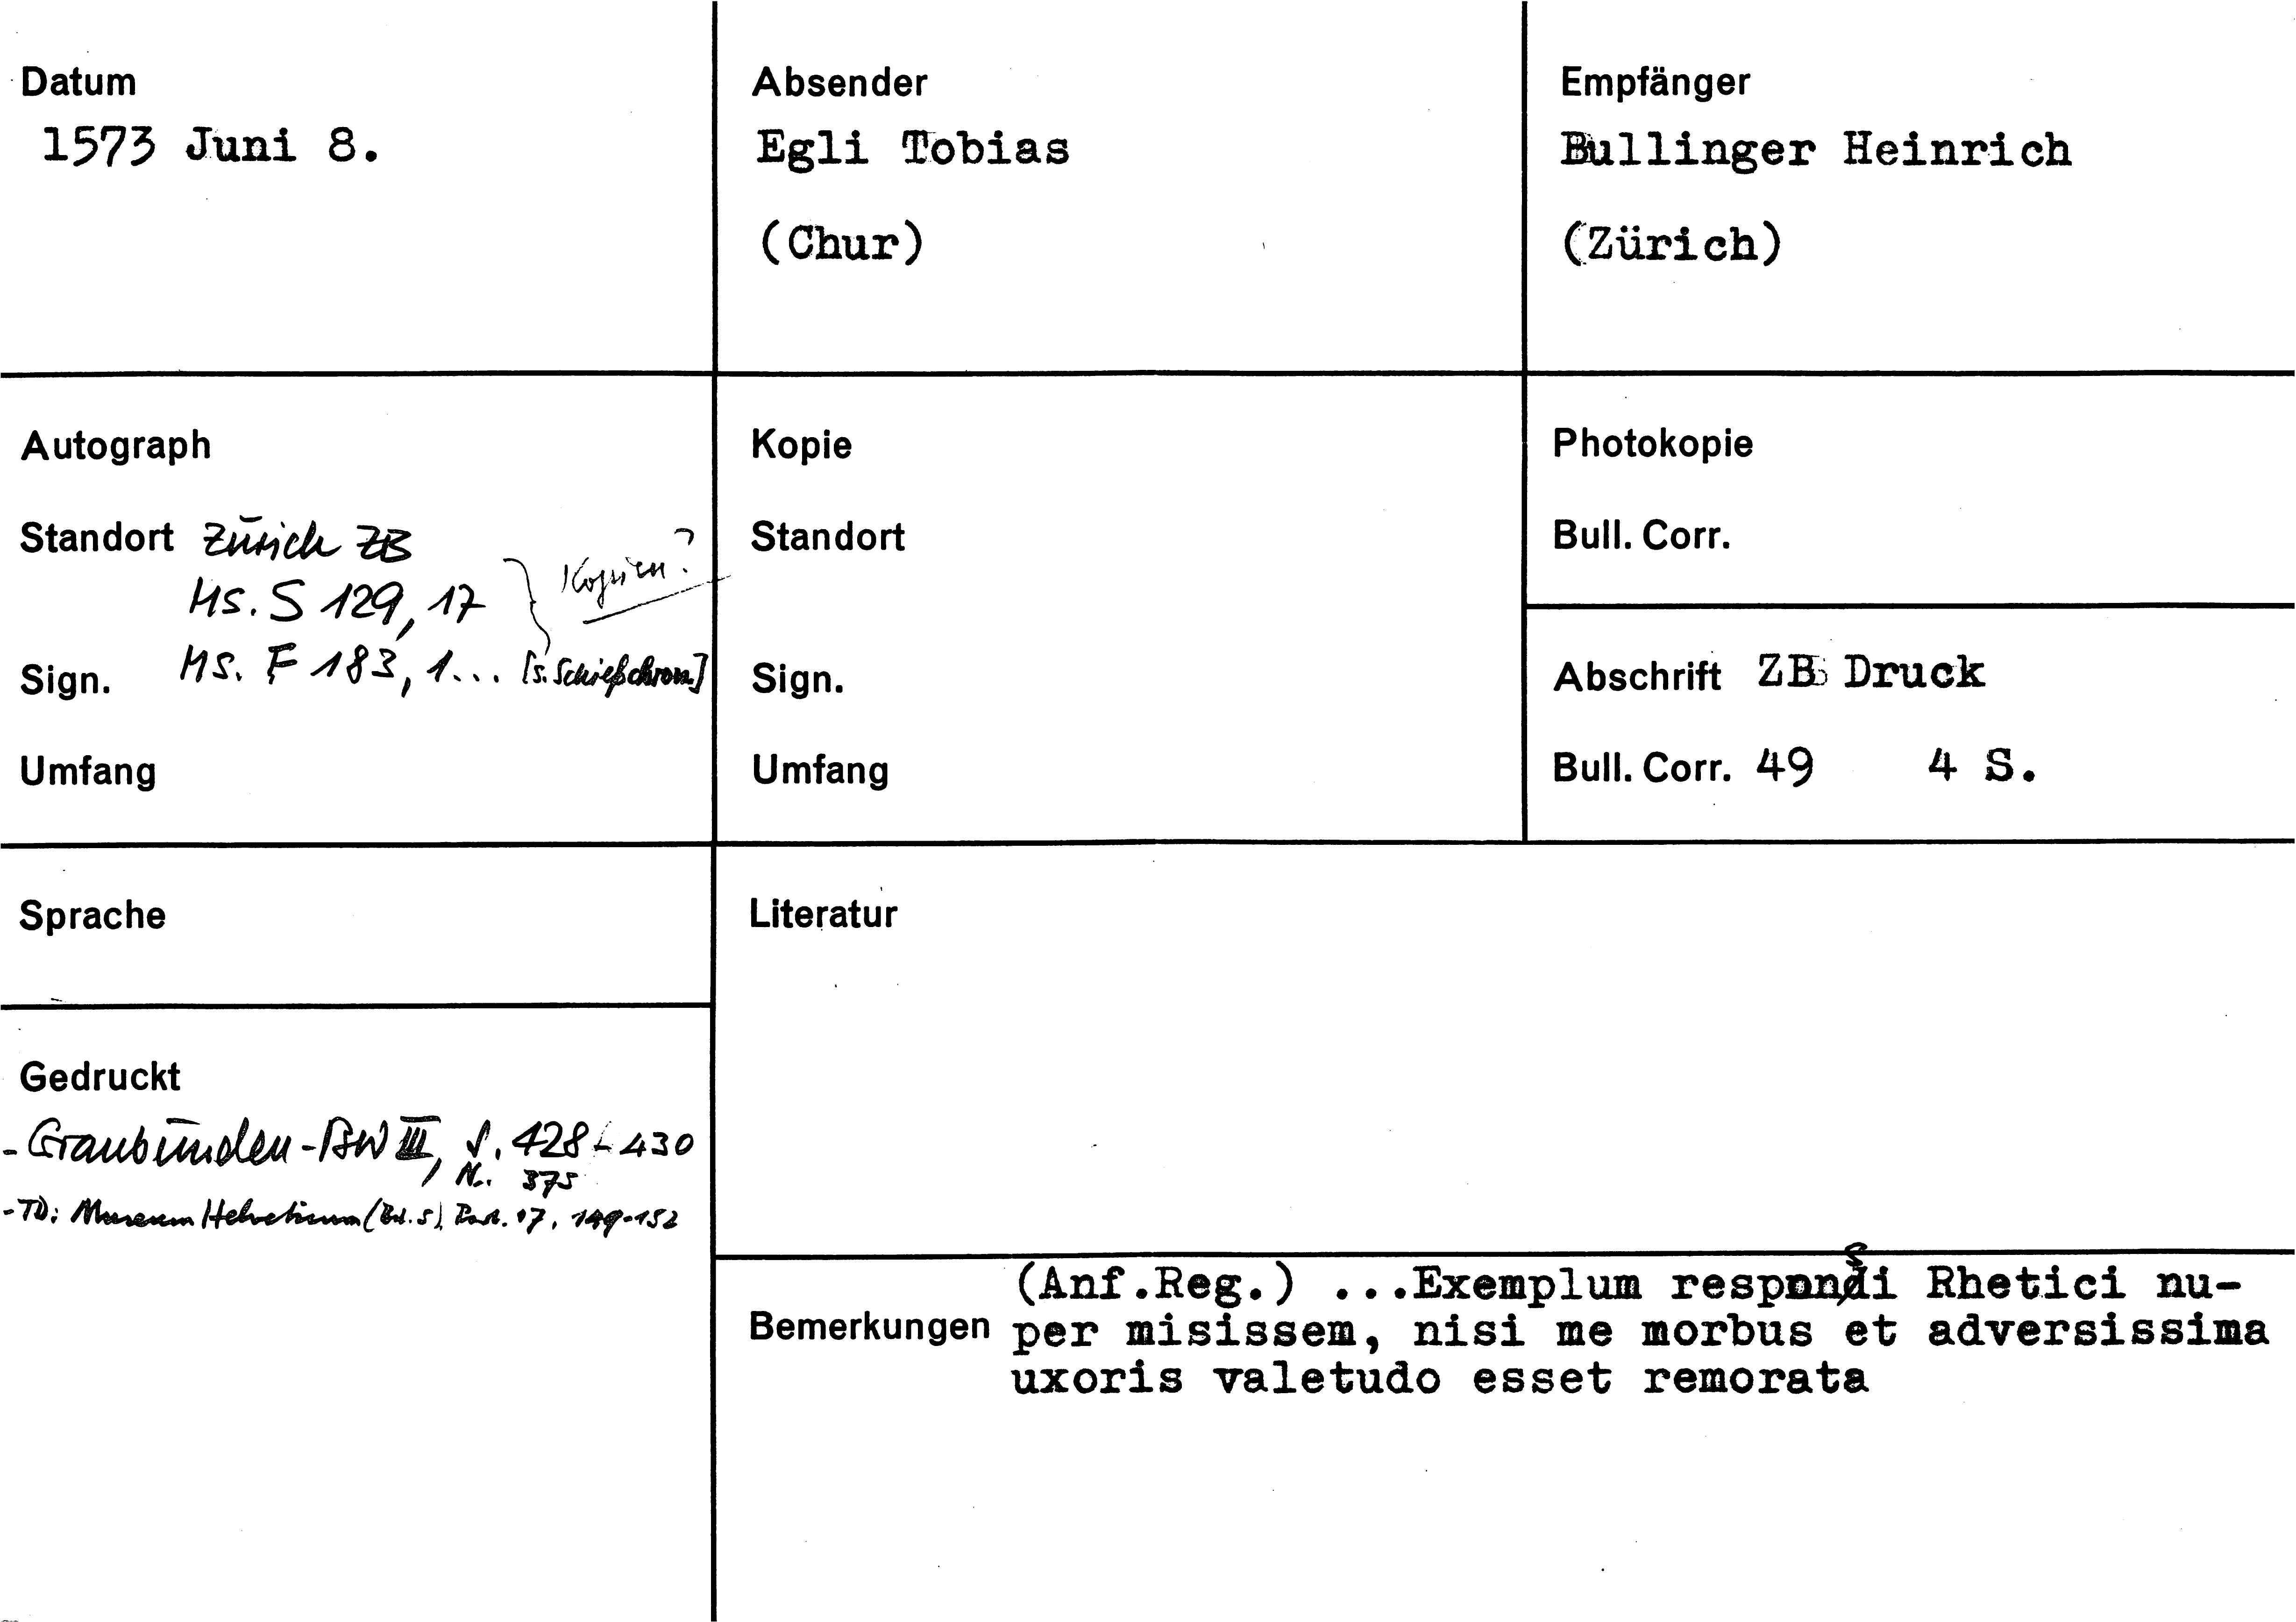 Datum
1573 Juni 8.
Absender
Egli Tobias
(Chur)
Empfänger
Bullinger Heinrich
(Zürich)
Autograph
Standort Zürich ZB
Ms. S 129, 17
Kopien?
Sign. Ms. F 183, 1... [s. Schießchron.]
Umfang
Kopie
Standort
Sign.
Umfang
Photokopie
Bull. Corr.
Abschrift ZB Druck
Bull. Corr. 49 4 S.
Sprache
Gedruckt
- Graubünden-BW III, S. 428-430
Nr. 375
- TD: Museum Helveticum (Bd. 5), Part. 17, 149-152
Literatur
Bemerkungen
(Anf.Reg.) ...Exemplum responsi Rhetici nu-
per misissem, nisi me morbus et adversissima
uxoris valetudo esset remorata